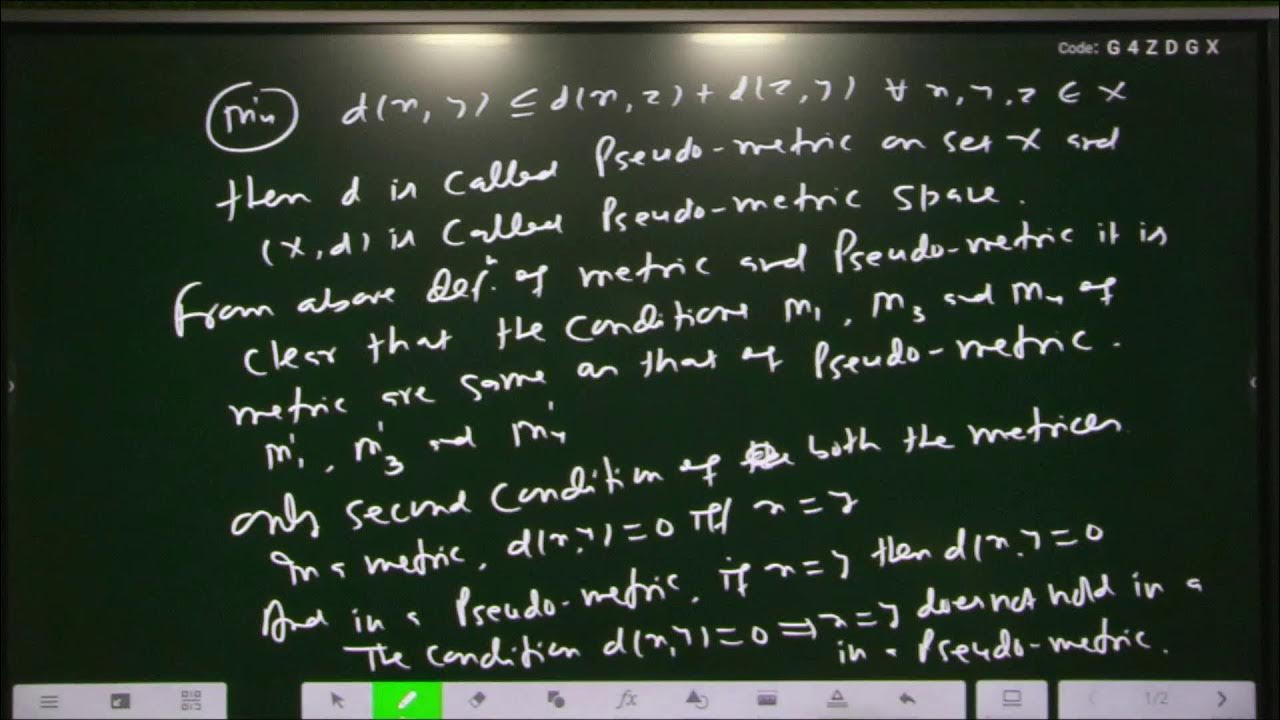 Code: G4ZDGX
m'4 d(x, y) ≤ d(x, z) + d(z, y) ∀ x, y, z ∈ X
then d is called Pseudo-metric on set X and
(X, d) is called Pseudo-metric space.
From above Defⁿ. of metric and Pseudo-metric it is
clear that the conditions m1, m3 and m4 of
metric are same as that of Pseudo-metric.
m'1, m'3 and m'4
only second condition of both the metrices
In a metric, d(x, y) = 0 iff x = y
And in a Pseudo-metric, if x = y then d(x, y = 0
The condition d(x, y) = 0 ⟹ x = y does not hold in a
in a Pseudo-metric.
fx
1/2